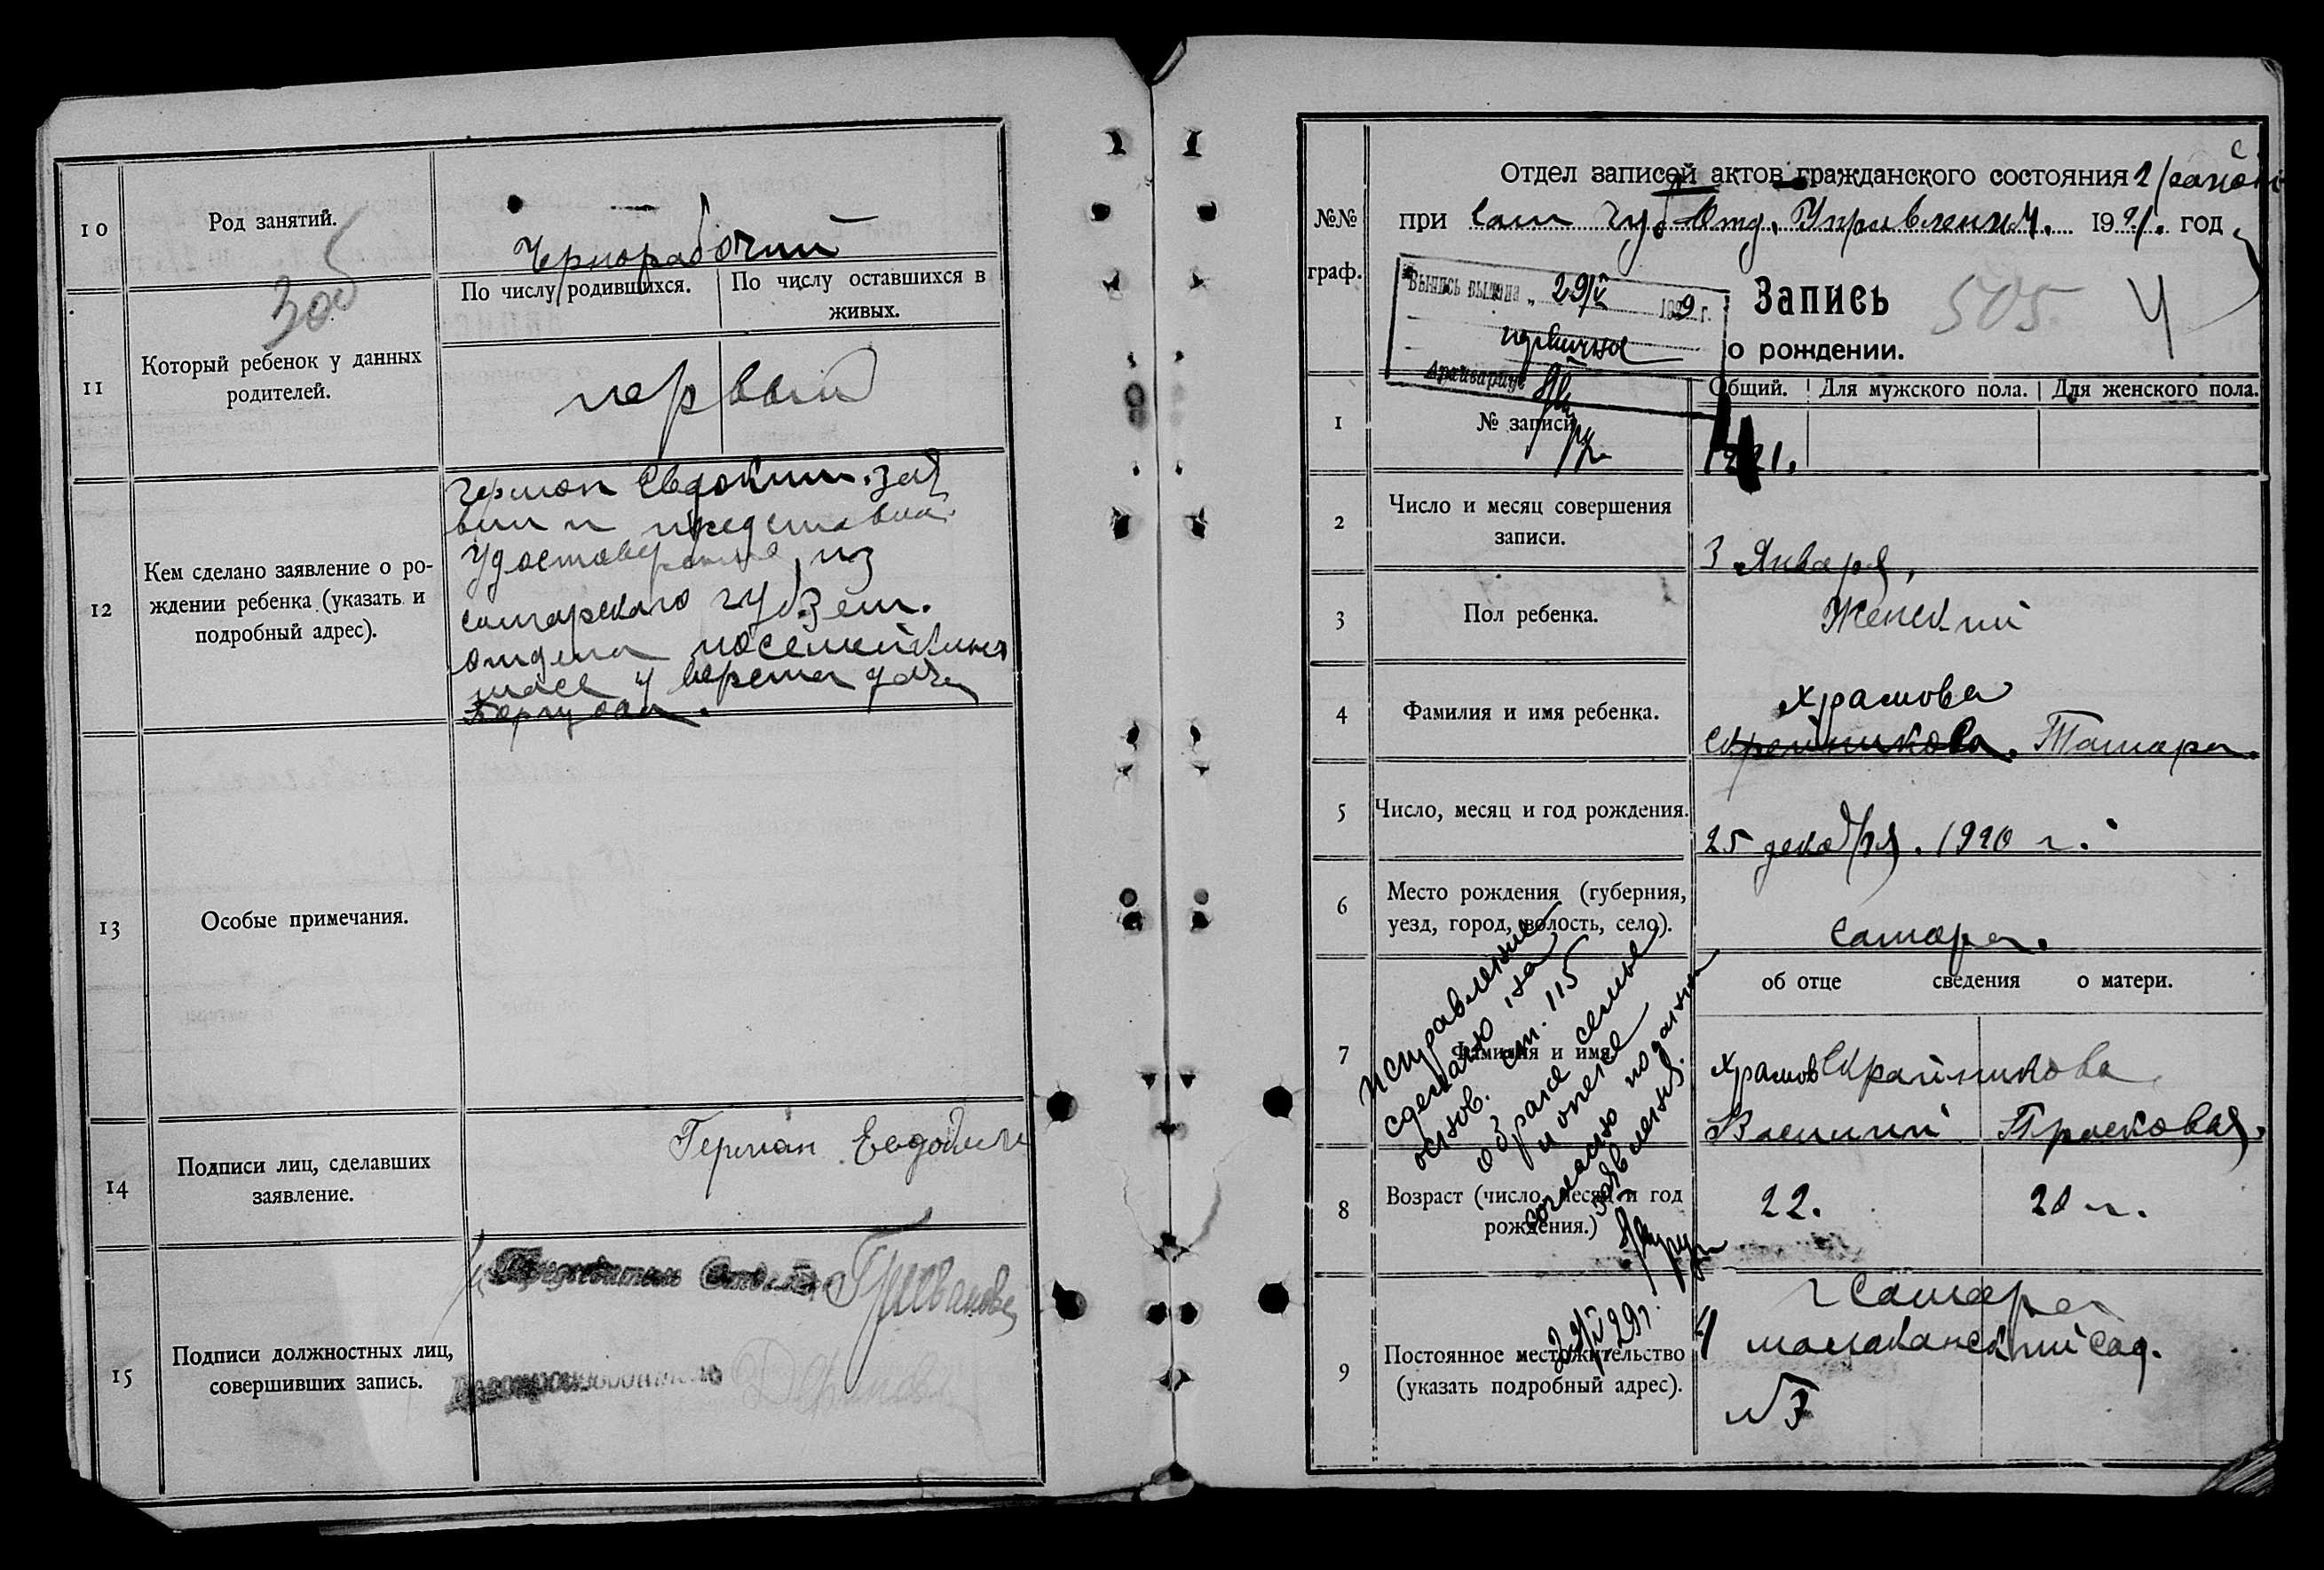 10
Род занятий.
Чернорабочий
306
11
Который ребенок у данных
родителей.
По числу родившихся.
По числу оставшихся в
живых.
первый
12
Кем сделано заявление о ро-
ждении ребенка (указать и
подробный адрес).
Герман Евдоким. зая
вил и представил
удостоверение из
самарского губзем.
отдела
шасе 4 верста дача
13
Особые примечания.
14
Подписи лиц, сделавших
заявление.
Герман Евдоким
15
Подписи должностных лиц,
совершивших запись.
Делопроизводитель
№№
граф.
Отдел записей актов гражданского состояния 2 района
при Сам Губ Отд. Управлении. 1921. год
Выпись выдана „ 29/V 1929 г.
первичная
Архивариус
Запись
о рождении.
505
4
Общий.
Для мужского пола.
Для женского пола.
1
№ записи.
2
Число и месяц совершения
записи.
3 Января,
3
Пол ребенка.
Женский
4
Фамилия и имя ребенка.
Храмова
Скрайникова. Тамара.
5
Число, месяц и год рождения.
25 декабря. 1920 г.
6
Место рождения (губерния,
уезд, город, волость, село).
Самара.
об отце сведения о матери.
7
Фамилия и имя
Храмов
Скрайникова
Василий
Прасковья,
8
Возраст (число, месяц и год
рождения.)
22.
20 г.
9
Постоянное местожительство
(указать подробный адрес).
г Самара
4 молоканский сад.
№
Исправление
сделано на
основ. ст. 115
о браке семье
и опеке
согласно подання
заявления.
29/V 29 г.